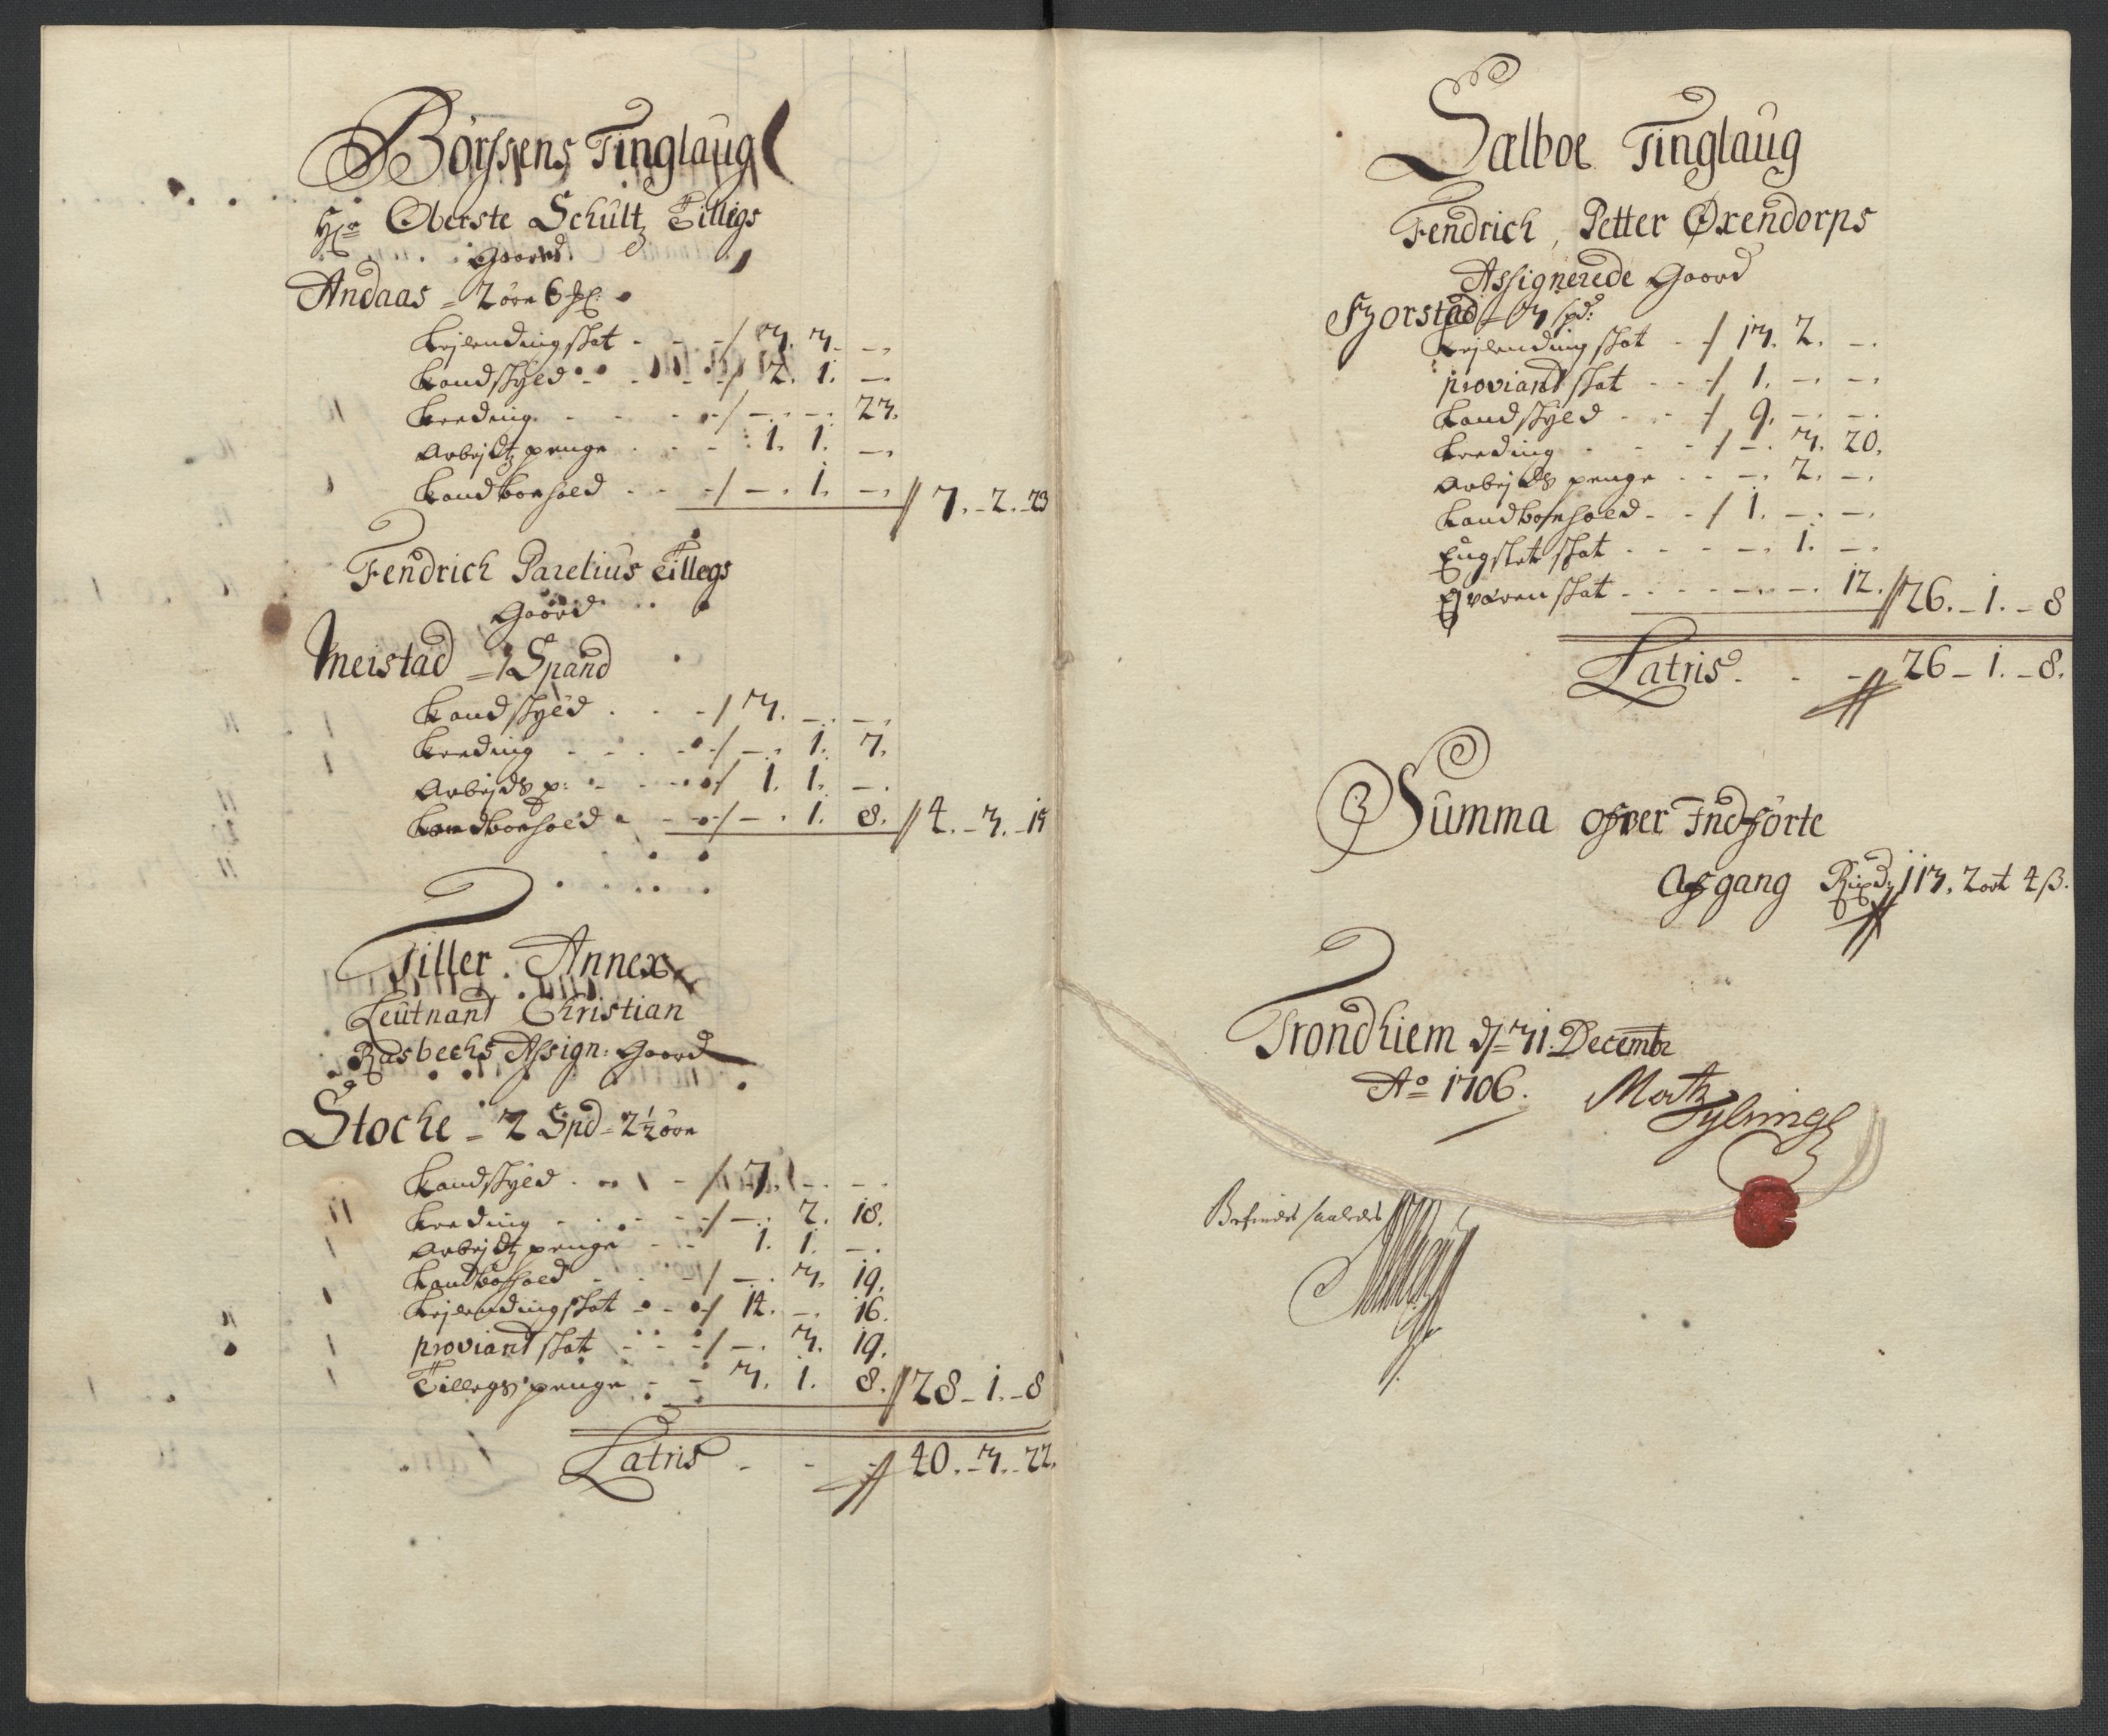 Börssens Tinglaug
Hr Oberste Schultz Tillegs
Goord
Andaas - 2 öre 6 Mkl:
Lejlendingskat - - 3. 3. -
Landskyld - - 2. 1. -
Leeding - - - - 23.
Arbejdtz penge - - 1. 1. -
Landboehold - - -. 1. - 7. - 2. - 23
Fendrich Parelius Tillegs
Goord
Meistad - 1 Spand
Landskyld - - 3. - -
Leeding - - -. 1. 7.
Arbejds p: - - 1. 1. -
Landboehold - - -. 1. 8. 4. - 3. - 15
Tiller Annex
Leütnand Christian
Rasbechs Assign: Goord
Stocke - 2 Spd - 2 1/2 öre
Landskyld - - 7. - -
Leeding - - -. 2. 18.
Arbejdtz penge - - 1. 1. -
Landbohold - - -. 3. 19.
Lejlendingskat - - 14. -. 16.
proviant skat - - -. 3. 19.
Tillegs penge - - 3. 1. 8. 28 - 1. - 8
Latris - - 40. - 3. - 22.
Sælboe Tinglaug
Fendrich, Petter Øxendorps
Assignerede Goord
Fjorstad - 3 spd:
Lejlending skat - - 13. 2. -.
proviant skat - - 1. -. -.
Landskyld - - 9. -. -.
Leeding - - -. 3. 20.
Arbejds penge - - -. 2. -.
Landboehold - - 1. -. -.
Eugslet skat - - -. 1. -.
Qværn skat - - - -. 12. 26. - 1. - 8
Latris. - - 26 - 1. - 8.
Summa ofver Indförte
Afgang Rixdr 113. 2 ort 4 ß.
Trondhiem d. 31. Decembr
Ao 1706.
Befindes saaledes